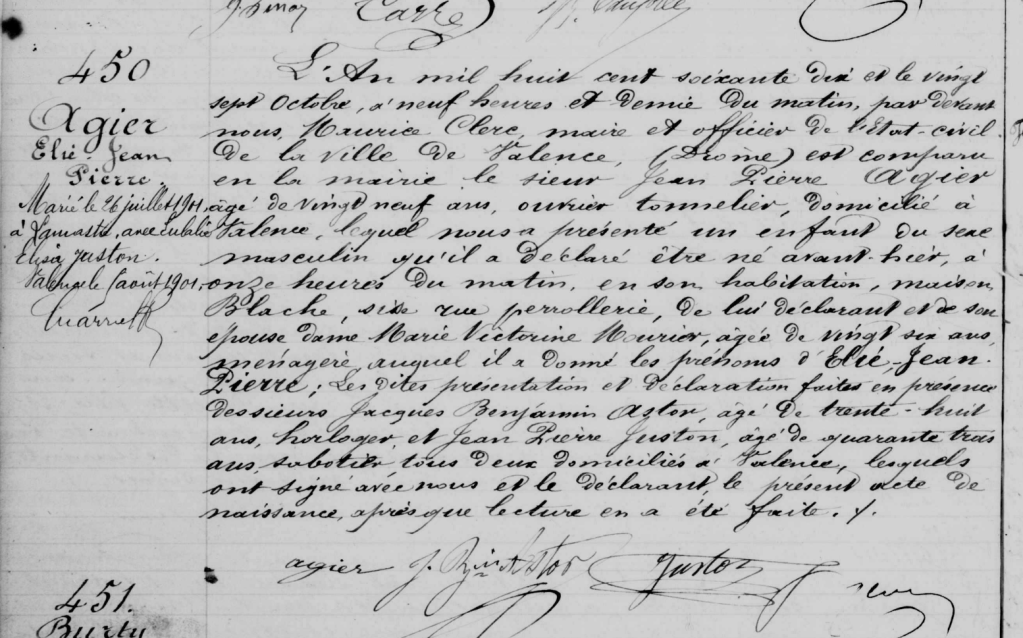 Carre
450
Agier
Elie-Jean
Pierre.
Marié le 26 juillet 1901
à Lamastre, avec Eulalie
Elisa Juston.
Valence le 1 août 1901.
L'An mil huit cent soixante dix et le vingt
sept Octobre, à neuf heures et demie du matin, par devant
nous, Maurice Clerc, maire et officier de l'Etat-civil
de la ville de Valence, (Drôme) est comparu
en la mairie le sieur Jean Pierre Agier
âgé de vingt neuf ans, ouvrier tonnelier, domicilié à
Valence, lequel nous a présenté un enfant du sexe
masculin qu'il a déclaré être né avant-hier, à
onze heures du matin, en son habitation, maison
Blache, sise rue perrollerie, de lui déclarant et de son
épouse dame Marie Victorine Mourier, âgée de vingt six ans,
ménagère, auquel il a donné les prénoms d'Elie-Jean-
Pierre; Les dites présentation et déclaration faites en présence
des sieurs Jacques Benjamin Astor, âgé de trente-huit
ans, horloger, et Jean Pierre Juston, âgé de quarante trois
ans, sabotier, tous deux domiciliés à Valence, lesquels
ont signé avec nous et le déclarant, le présent acte de
naissance, après que lecture en a été faite. /.
agier J. Bjin Astor Juston
451.
Burty